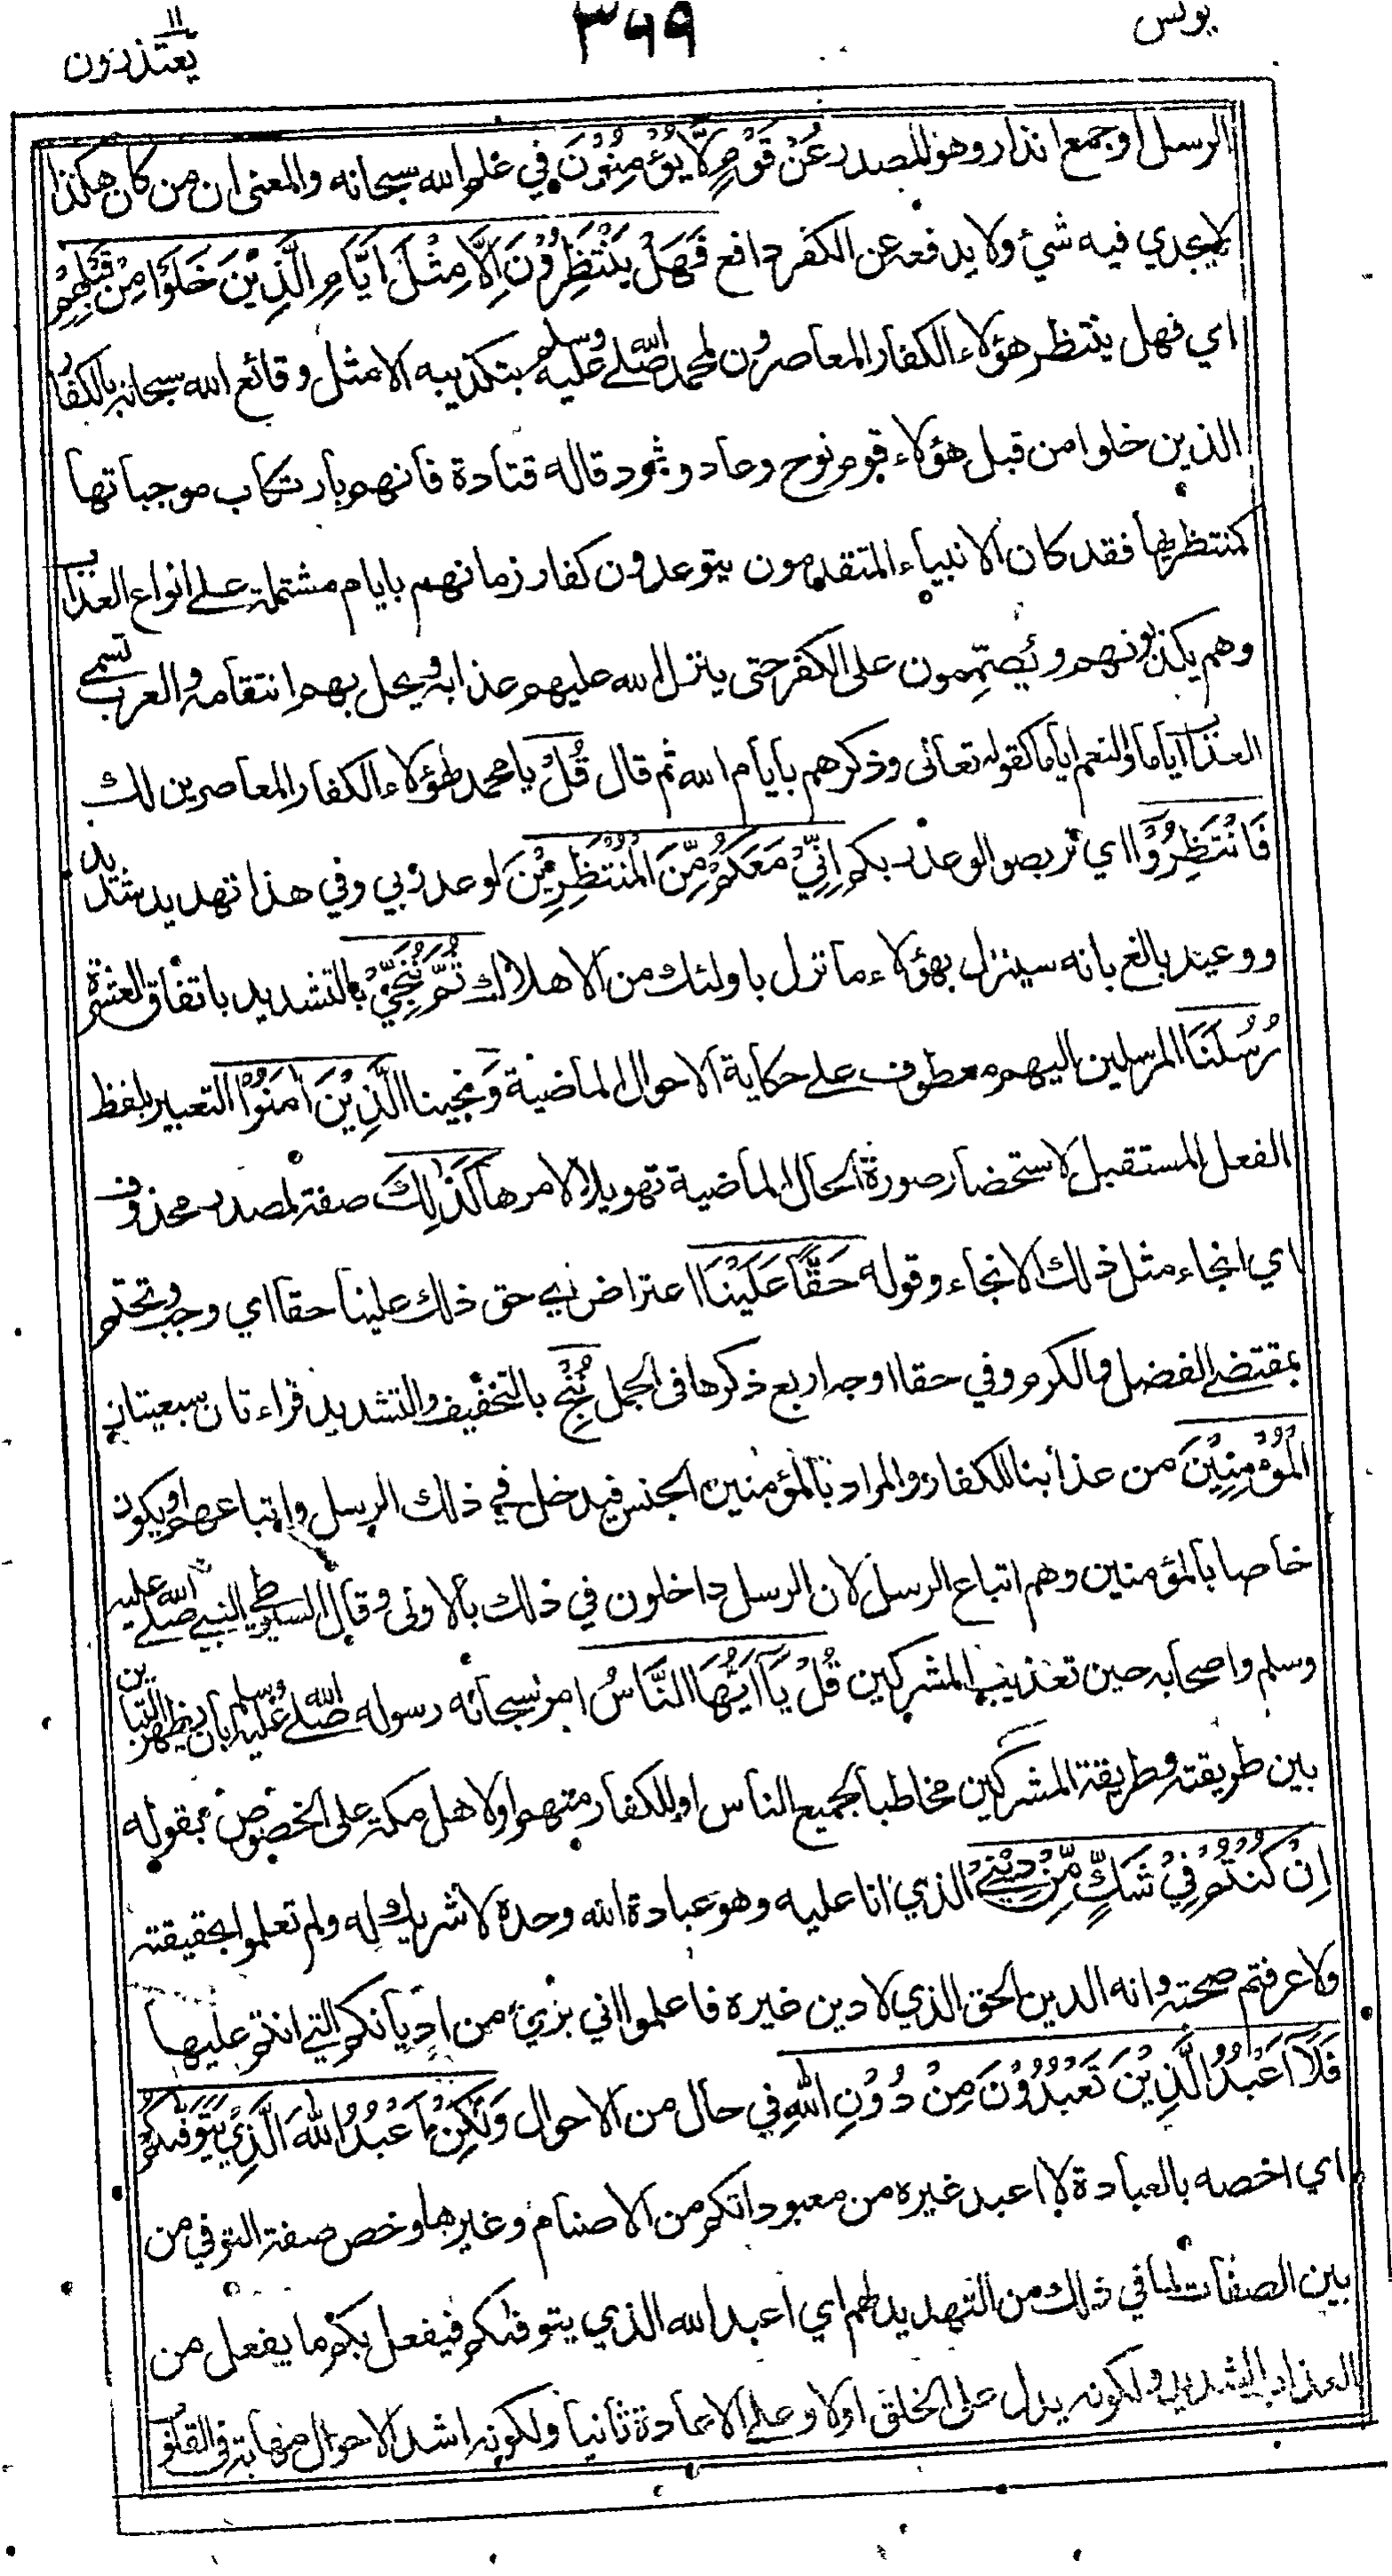 يونس
٣٦٩
يعتذرون ١١
الرسل او جمع انذار وهو المصدر عَنْ قَوْمٍ لَّا يُؤْمِنُوْنَ في علم الله سبحانه والمعنى ان من كان هكذا
لا يجدي فيه شئ ولا يدفعه عن الكفر دافع فَهَلْ يَنْتَظِرُوْنَ اِلَّا مِثْلَ اَيَّامِ الَّذِيْنَ خَلَوْا مِنْ قَبْلِهِمْ
اي فهل ينتظر هؤلاء الكفار المعاصرون لمحمد صلى الله عليه وسلم بتكذيبه الا مثل وقائع الله سبحانه بالكفار
الذين خلوا من قبل هؤلاء قوم نوح وعاد وثمود قاله قتادة فانهم بارتكاب موجباتها
كمنتظريها فقد كان الانبياء المتقدمون يتوعدون كفار زمانهم بايام مشتملة على انواع العذاب
وهم يكذبونهم ويُصمِّمون على الكفر حتى ينزل الله عليهم عذابه ويحل بهم انتقامه والعرب تسمى
العذاب اياما والنعم اياما كقوله تعالى وذكرهم بايام الله ثم قال قُلْ يا محمد لهؤلاء الكفار المعاصرين لك
فَانْتَظِرُوْا اي تربصوا لوعد ربكم اِنِّيْ مَعَكُمْ مِّنَ الْمُنْتَظِرِيْنَ لوعد ربي وفي هذا تهديد شديد
ووعيد بالغ بانه سينزل بهؤلاء ما نزل باولئك من الاهلاك ثُمَّ نُنَجِّيْ بالتشديد باتفاق العشرة
رُسُلَنَا المرسلين اليهم معطوف على حكاية الاحوال الماضية وَ نجينا الَّذِيْنَ اٰمَنُوْا التعبير بلفظ
الفعل المستقبل لاستحضار صورة الحال الماضية تهويلا لامرها كَذٰلِكَ صفة لمصدر محذوف
اي انجاء مثل ذلك الانجاء وقوله حَقًّا عَلَيْنَا اعتراض اي حق ذلك علينا حقا اي وجب وتحتم
بمقتضى الفضل والكرم وفي حقا اوجه اربع ذكرها في الجمل نُنْجِ بالتخفيف والتشديد قراءتان سبعيتان
الْمُؤْمِنِيْنَ من عذابنا للكفار والمراد بالمؤمنين الجنس فيدخل في ذلك الرسل واتباعهم او يكون
خاصا بالمؤمنين وهم اتباع الرسل لان الرسل داخلون في ذلك بالاولى وقال السيوطي النبي صلى الله عليه
وسلم واصحابه حين تعذيب المشركين قُلْ يٰٓاَيُّهَا النَّاسُ امر سبحانه رسوله صلى الله عليه وسلم بان يظهر التباين
بين طريقته وطريقة المشركين مخاطبا لجميع الناس او للكفار منهم او لاهل مكة على الخصوص بقوله
اِنْ كُنْتُمْ فِيْ شَكٍّ مِّنْ دِيْنِيْ الذي انا عليه وهو عبادة الله وحده لا شريك له ولم تعلموا بحقيقته
ولا عرفتم صحته وانه الدين الحق الذي لا دين غيره فاعلموا اني برئ من اديانكم التي انتم عليها
فَلَآ اَعْبُدُ الَّذِيْنَ تَعْبُدُوْنَ مِنْ دُوْنِ اللهِ في حال من الاحوال وَلٰكِنْ اَعْبُدُ اللهَ الَّذِيْ يَتَوَفّٰىكُمْ
اي اخصه بالعبادة لا اعبد غيره من معبوداتكم من الاصنام وغيرها وخص صفة التوفي من
بين الصفات لما في ذلك من التهديد لهم اي اعبد الله الذي يتوفكم فيفعل بكم ما يفعل من
العذاب الشديد ولكونه يدل على الخلق اولا وعلى الاعادة ثانيا ولكونه اشد الاحوال مهابة في القلوب